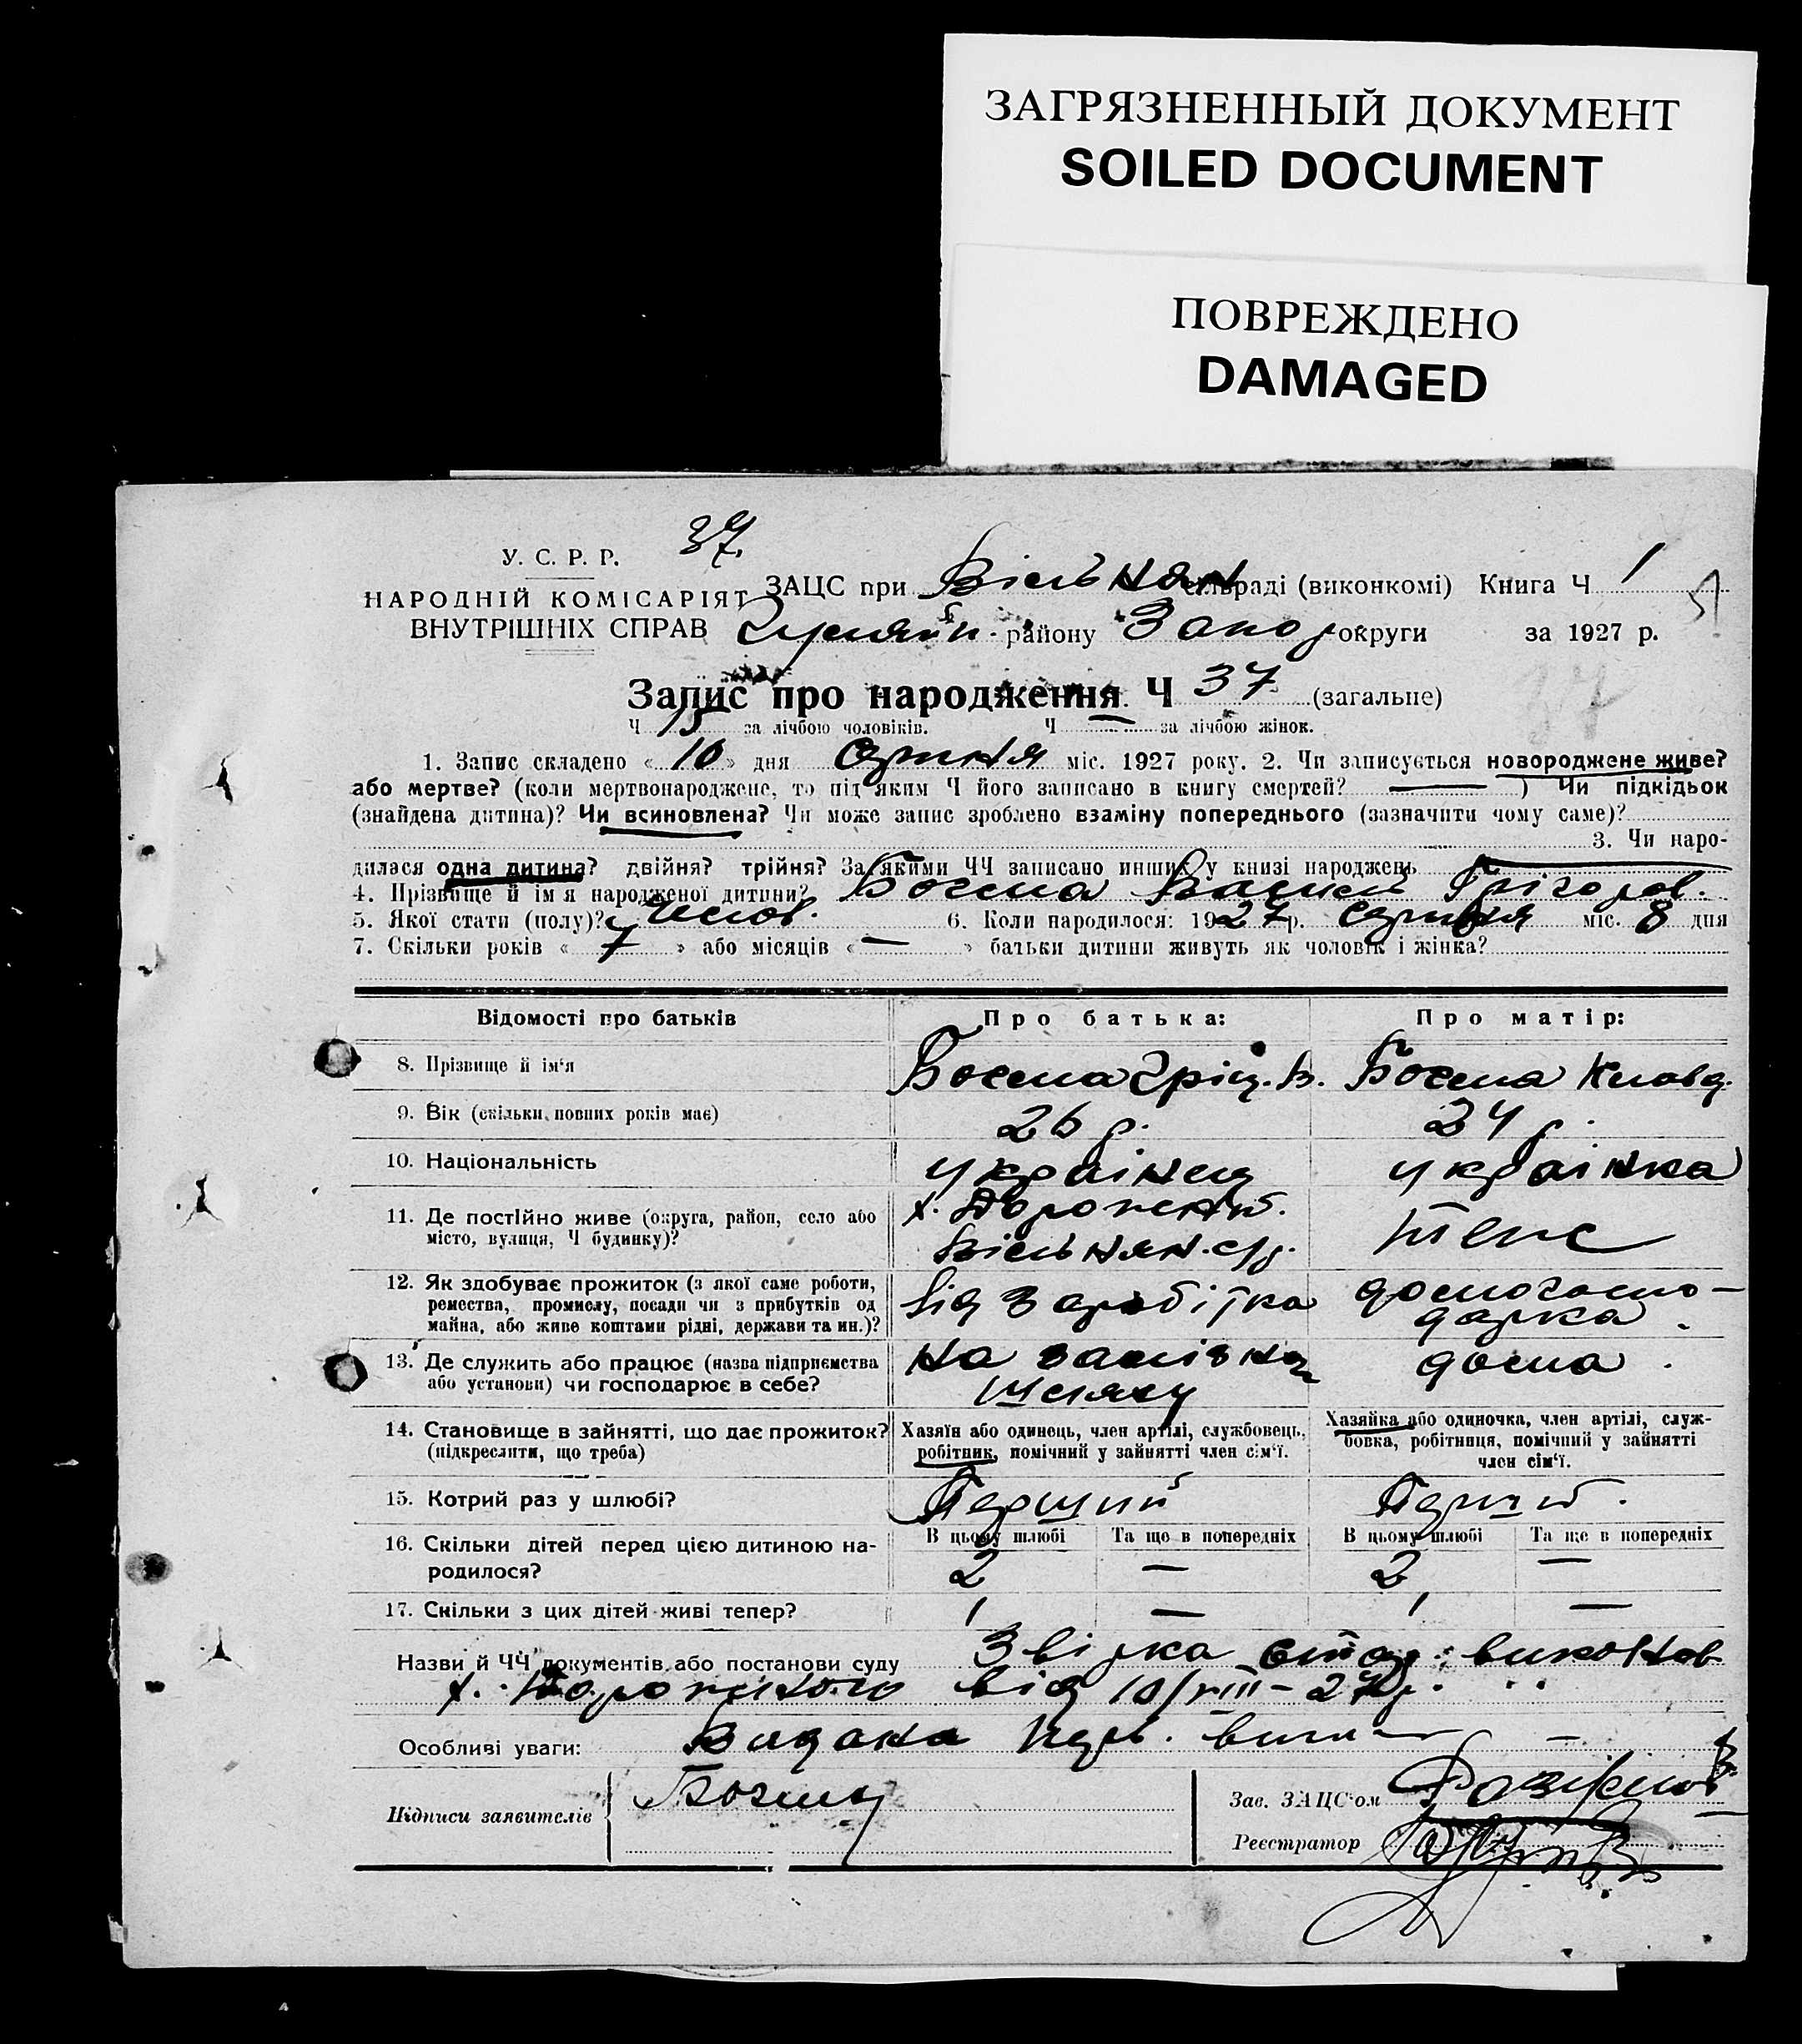 ЗАГРЯЗНЕННЫЙ ДОКУМЕНТ
SOILED DOCUMENT
ПОВРЕЖДЕНО
DAMAGED
37.
У. С. Р. Р.
НАРОДНІЙ КОМІСАРІЯТ
ВНУТРІШНІХ СПРАВ
ЗАЦС при Вільнян сільраді (виконкомі) Книга Ч 1
району Запор округи за 1927 р.
Запис про народження Ч 37 (загальне)
Ч 15 за лічбою чоловіків. Ч — за лічбою жінок.
1. Запис складено « 10 » дня серпня міс. 1927 року. 2. Чи записується новороджене живе?
або мертве? (коли мертвонароджене, то під яким Ч його записано в книгу смертей? — ) Чи підкідьок
(знайдена дитина)? Чи всиновлена? Чи може запис зроблено взаміну попереднього (зазначити чому саме)?
3. Чи наро-
дилася одна дитина? двійня? трійня? За якими ЧЧ записано инших у книзі народжень
4. Прізвище й ім'я народженої дитини?
5. Якої стати (полу)? Чолов. 6. Коли народилося: 1927 р. серпня міс. 8 дня
7. Скільки років « 7 » або місяців « — » батьки дитини живуть як чоловік і жінка?
Відомості про батьків Про батька: Про матір:
8. Прізвище й ім'я
9. Вік (скільки повних років має) 26 р. 24 р.
10. Національність українец українка
11. Де постійно живе (округа, район, село або
місто, вулиця, Ч будинку)? Вільнян. с/р. теж
12. Як здобуває прожиток (з якої саме роботи,
ремества, промислу, посади чи з прибутків од
майна, або живе коштами рідні, держави та ин.)? від заробітка домогаспо-
дарка
13. Де служить або працює (назва підприємства
або установи) чи господарює в себе? на залізном шляху дома.
14. Становище в зайнятті, що дає прожиток?
(підкреслити, що треба)
Хазяїн або одинець, член артілі, службовець,
робітник, помічний у зайнятті член сім'ї.
Хазяйка або одиночка, член артілі, служ-
бовка, робітниця, помічний у зайнятті
член сім'ї.
15. Котрий раз у шлюбі? Перший Перший.
16. Скільки дітей перед цією дитиною на-
родилося?
В цьому шлюбі Та ще в попередніх В цьому шлюбі Та ще в попередніх
2 — 2 —
17. Скільки з цих дітей живі тепер? 1 — 1 —
Назви й ЧЧ документів або постанови суду
від 10/VIII–27 р.
Особливі уваги: Видана
Підписи заявителів
Зав. ЗАЦС'ом
Реєстратор